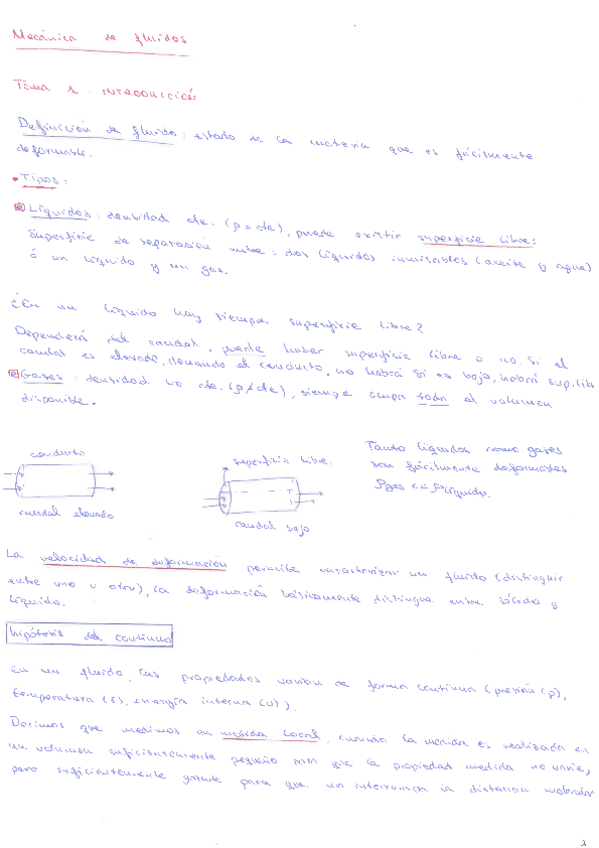 Mecánica de fluidos
Tema 1. INTRODUCCIÓN
Definición de fluido: estado de la materia que es fácilmente
deformable.
• Tipos:
Líquidos: densidad cte. (ρ = cte), puede existir superficie libre:
Superficie de separación entre: dos líquidos inmiscibles (aceite y agua)
ó un líquido y un gas.
¿En un líquido hay siempre superficie libre?
Dependerá del caudal, puede haber superficie libre o no. Si el
caudal es elevado, llenando el conducto, no habrá si es bajo, habrá sup. libre
Gases: densidad no cte. (ρ ≠ cte), siempre ocupa todo el volumen
disponible.
conducto
caudal elevado
superficie libre.
caudal bajo
Tanto líquidos como gases
son fácilmente deformables
ρgas << ρlíquido.
La velocidad de deformación permite caracterizar un fluido (distinguir
entre uno u otro), la deformación básicamente distingue entre sólido y
líquido.
hipótesis del continuo
En un fluido, las propiedades varían de forma continua (presión (p),
temperatura (T), energía interna (U)).
Decimos que medimos una medida local, cuando la medida es realizada en
un volumen suficientemente pequeño para que la propiedad medida no varíe,
pero suficientemente grande para que la distancia molecular
1